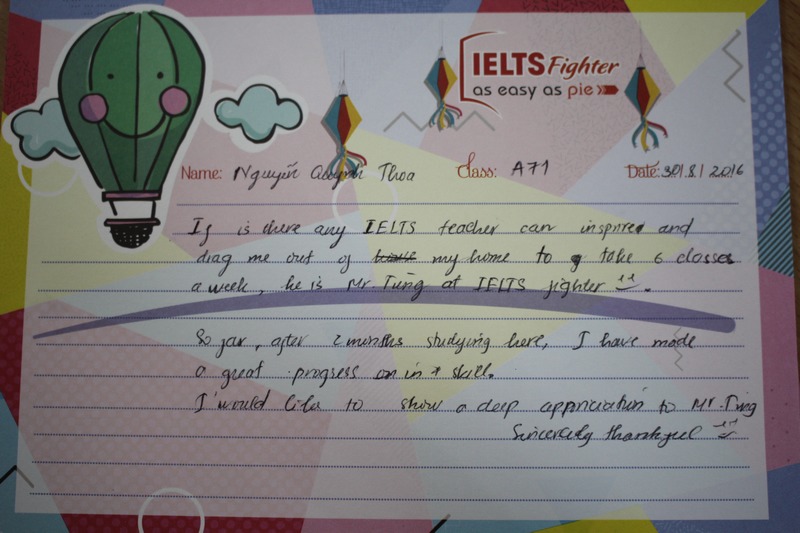 IELTS Fighter
as easy as pie
Name: Nguyễn Quỳnh Thoa Class: A71 Date: 30/8/2016
If is there any IELTS teacher can inspired and
drag me out of house my home to take 6 classes
a week, he is Mr. Tùng at IELTS fighter
So far, after 2 months studying here, I have made
a great progress on in 4 skill.
I would like to show a deep appriciation to Mr. Tùng
Sincerely thankful